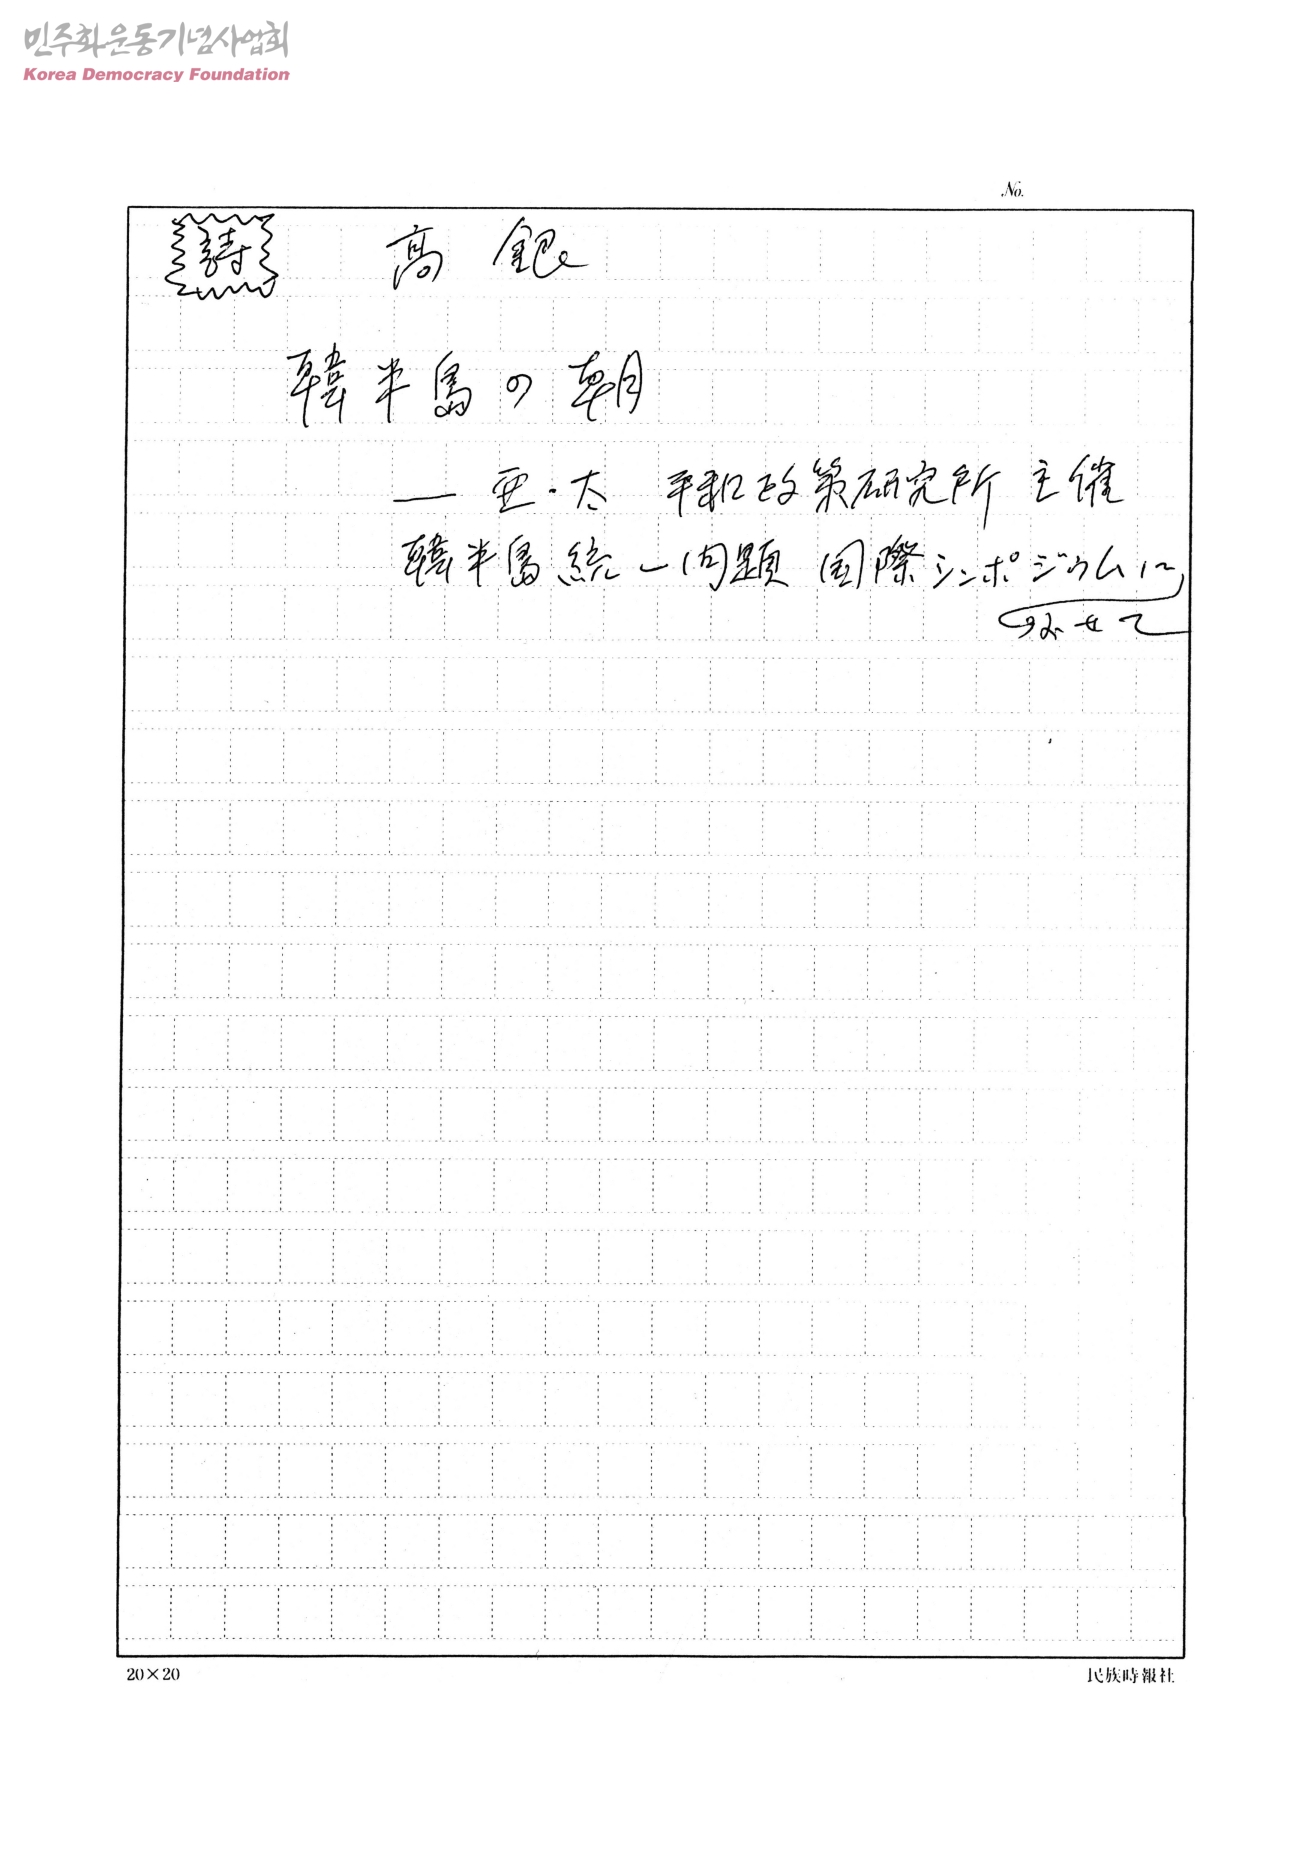 민주화운동기념사업회
Korea Democracy Foundation
No.
詩 高 銀
韓半島の朝
— 亜・太 平和政策研究所 主催
韓半島統一問題 国際シンポジウムに
よせて
20×20
民族時報社